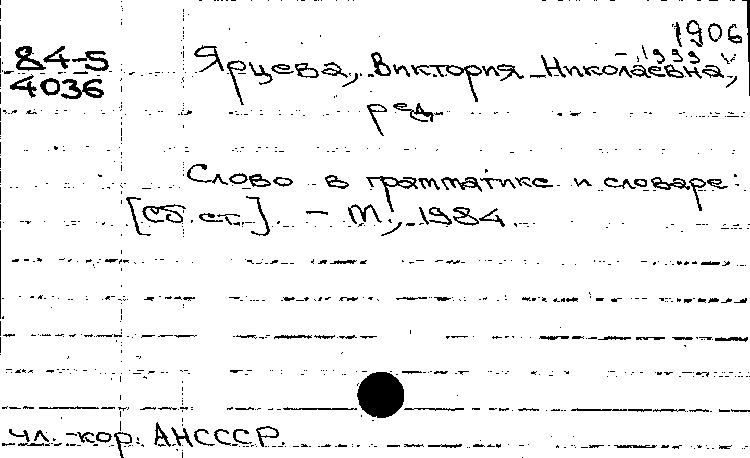 1906
84-5 Ярцева, Виктория Николаевна, -1999
4036 ред.
Слово в грамматике и словаре:
[Сб. ст.]. - М., 1984.
чл.-кор. АНСССР.